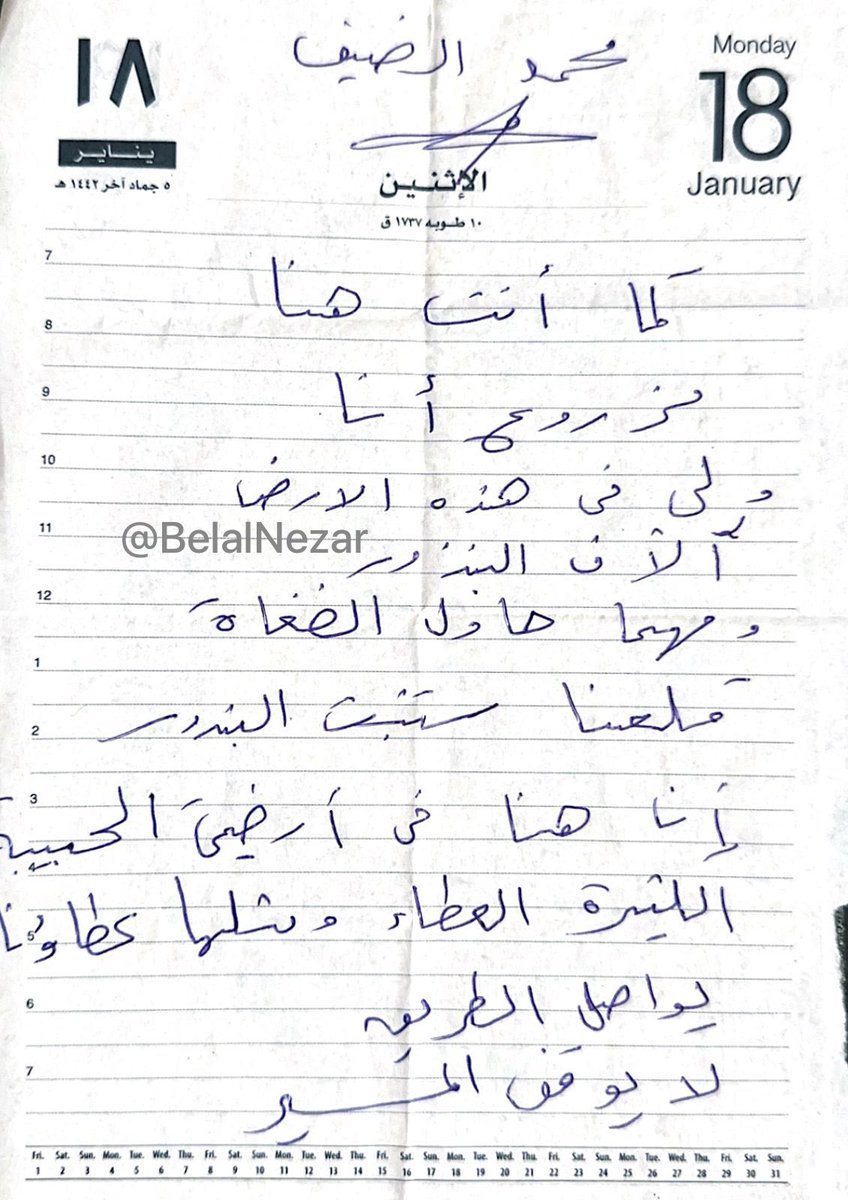 محمد الضيف
Monday
١٨
18
يناير
January
٥ جماد آخر ١٤٤٢ هـ
الإثنين
١٠ طوبه ١٧٣٧ ق
7
كما أنت هنا
8
9
مزروع أنا
10
ولى فى هذه الارض
@BelalNezar
11
آلاف البذور
12
ومهما حاول الطغاة
1
قلعنا ستنبت البذور
2
3
إنا هنا فى أرضى الحبيبة
4
الكثيرة العطاء ومثلها عطاؤنا
5
6
يواصل الطريق
7
لا يوقف المسير
Fri. Sat. Sun. Mon. Tue. Wed. Thu. Fri. Sat. Sun. Mon. Tue. Wed. Thu. Fri. Sat. Sun. Mon. Tue. Wed. Thu. Fri. Sat. Sun. Mon. Tue. Wed. Thu. Fri. Sat. Sun.
1 2 3 4 5 6 7 8 9 10 11 12 13 14 15 16 17 18 19 20 21 22 23 24 25 26 27 28 29 30 31